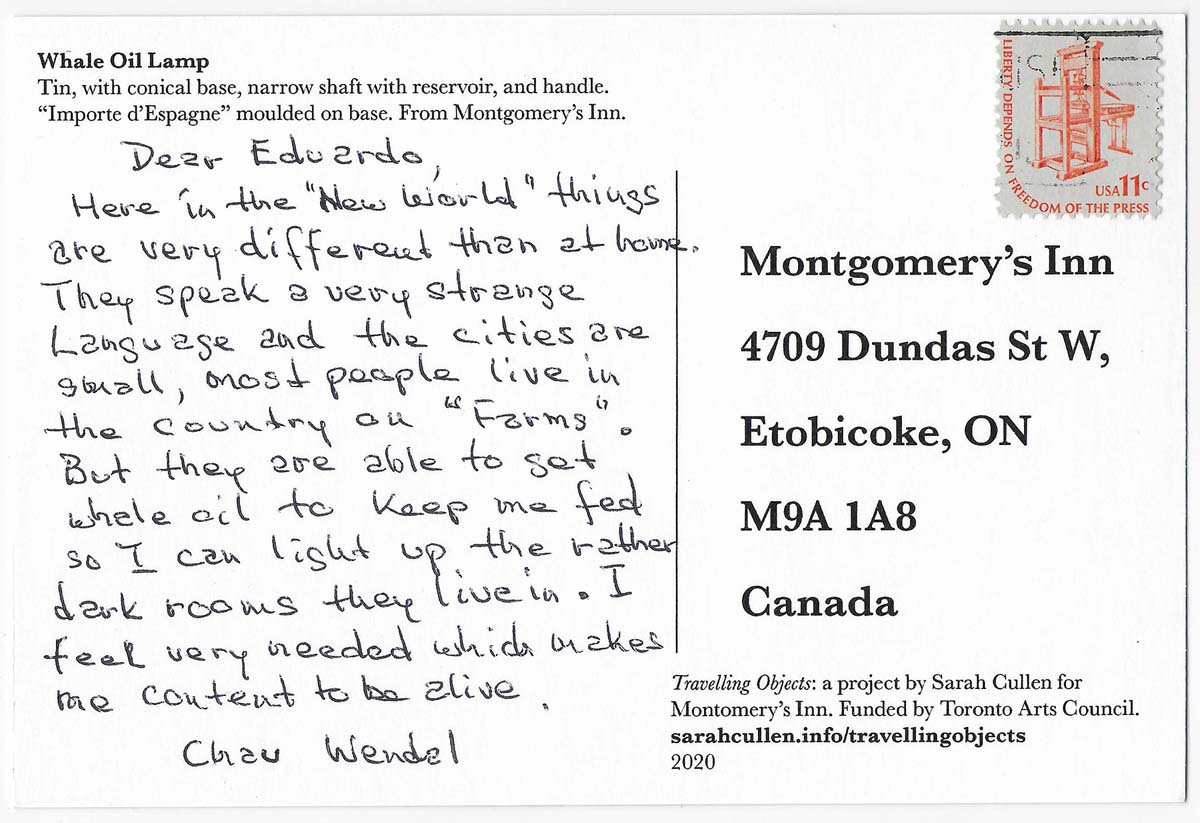 Whale Oil Lamp
Tin, with conical base, narrow shaft with reservoir, and handle.
“Importe d’Espagne” moulded on base. From Montgomery’s Inn.
Dear Eduardo,
Here in the "New World" things
are very different than at home.
They speak a very strange
Language and the cities are
small, most people live in
the country on "Farms".
But they are able to get
whale oil to keep me fed
so I can light up the rather
dark rooms they live in. I
feel very needed which makes
me content to be alive.
Chau Wendal
LIBERTY DEPENDS ON FREEDOM OF THE PRESS
USA 11c
Montgomery’s Inn
4709 Dundas St W,
Etobicoke, ON
M9A 1A8
Canada
Travelling Objects: a project by Sarah Cullen for
Montomery’s Inn. Funded by Toronto Arts Council.
sarahcullen.info/travellingobjects
2020